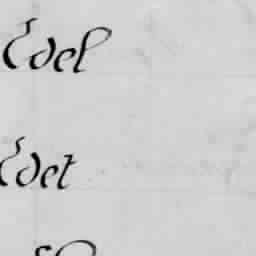 Edel
Edet